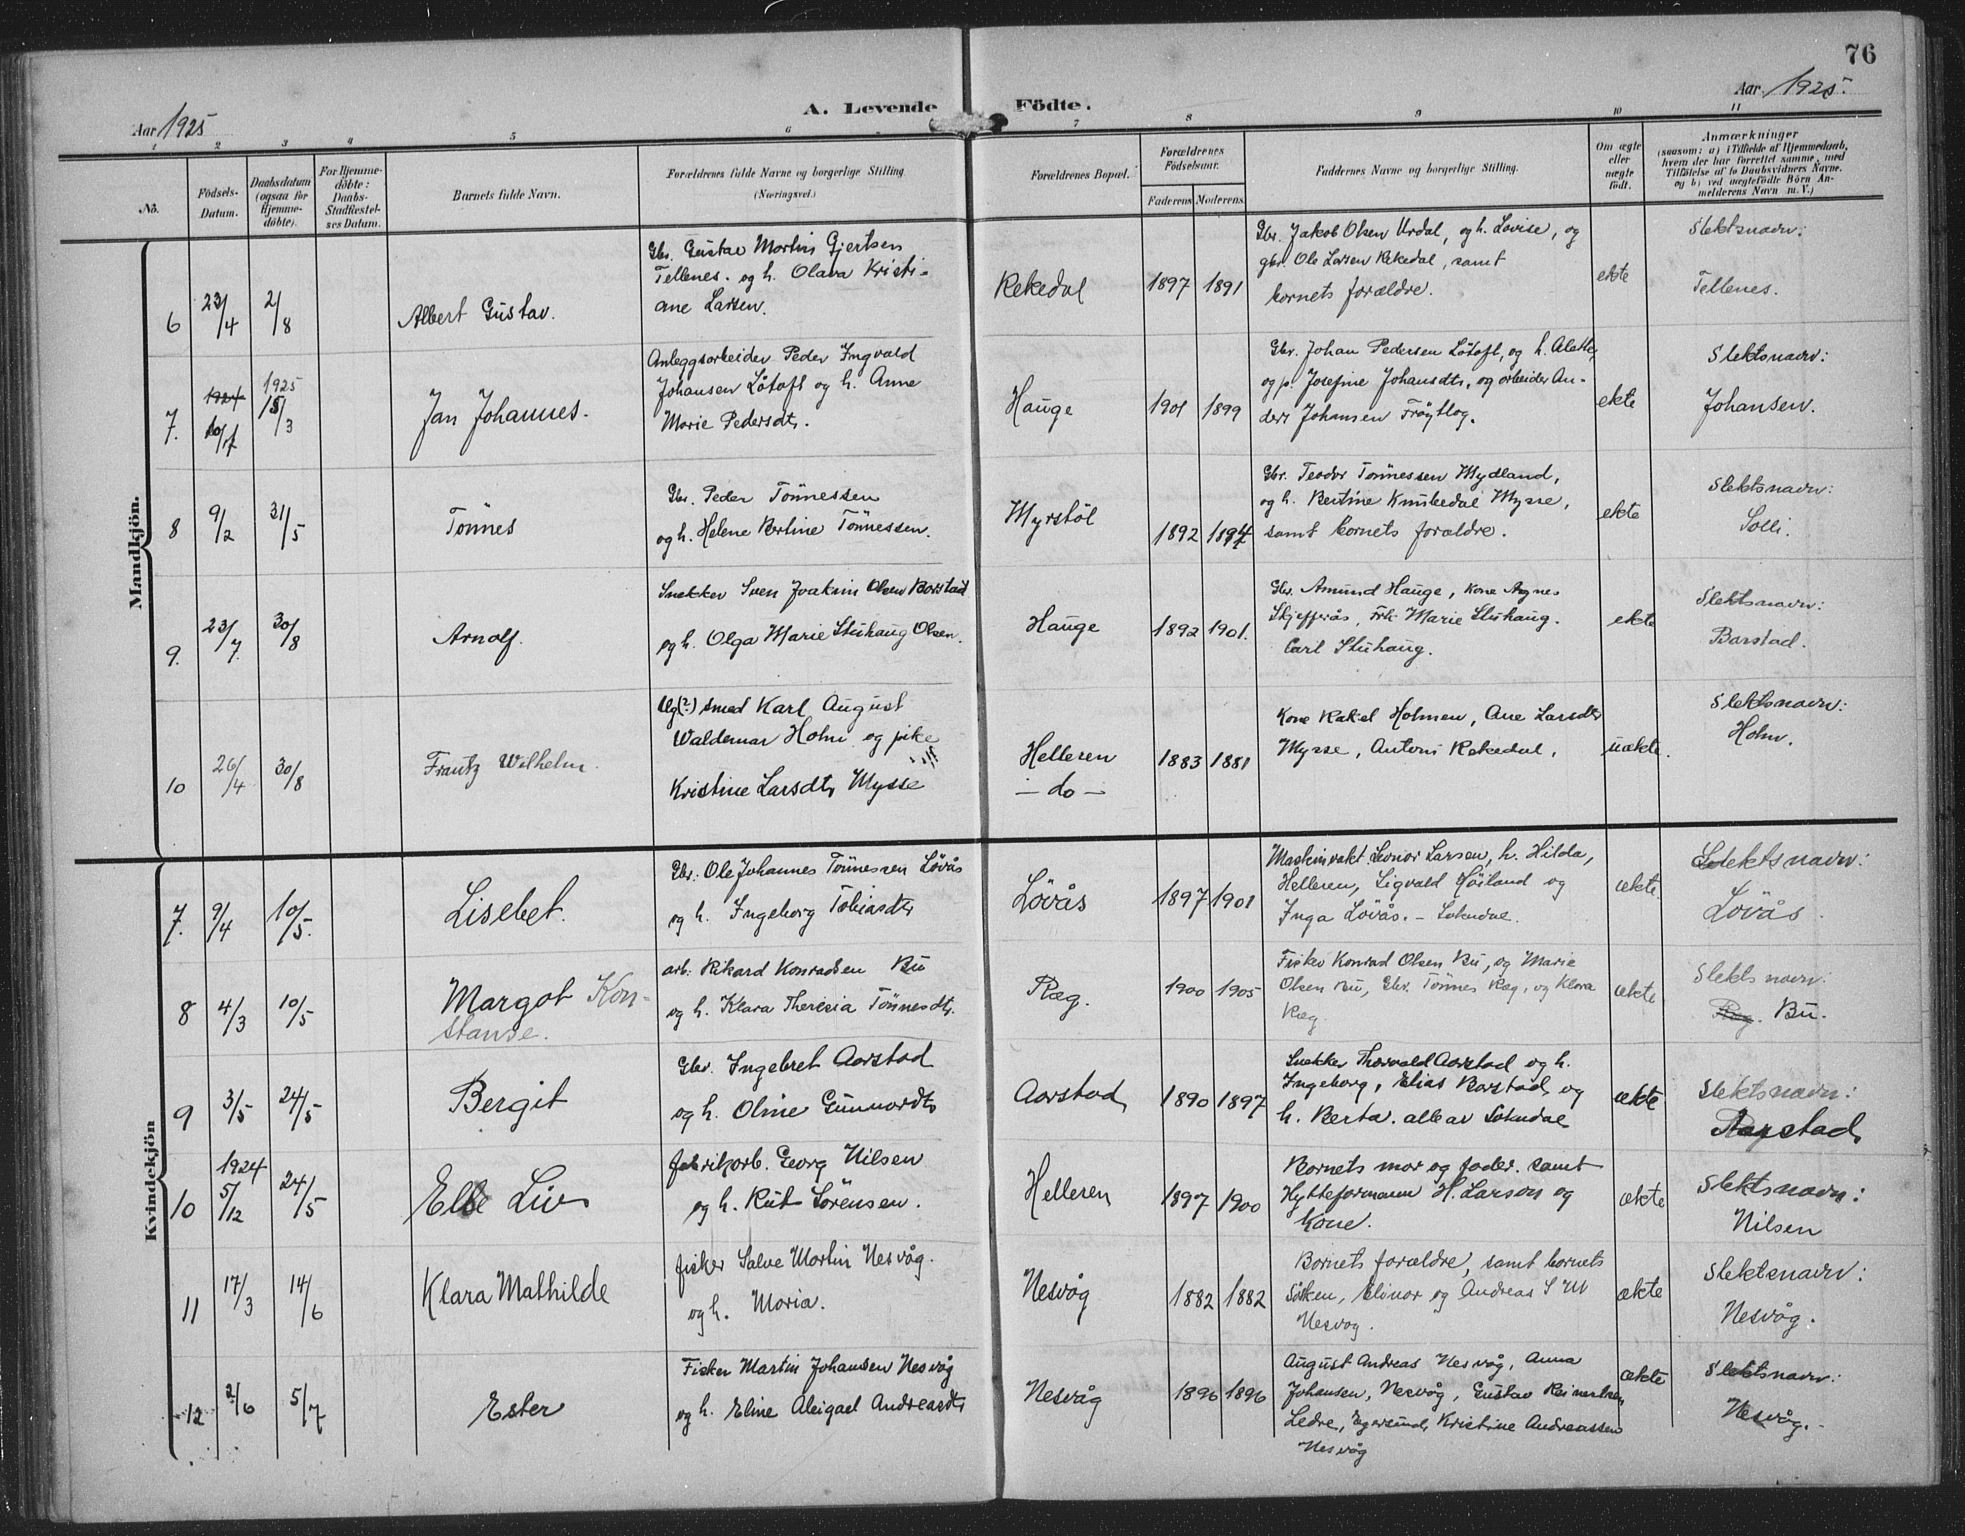 76
Aar 1925
A. Levende Födte.
Aar 1925.
1 2 3 4 5 6 7 8 9 10 11
No.
Födsels-Datum.
Daabsdatum (ogsaa for Hjemme-döbte).
For Hjemme-döbte: Daabs-Stadfæstel-ses Datum.
Barnets fulde Navn.
Forældrenes fulde Navne og borgerlige Stilling (Næringsvei.)
Forældrenes Bopæl.
Forældrenes Födselsaar.
Faderens Moderens
Faddernes Navne og borgerlige Stilling.
Om ægte eller uægte födt.
Anmærkninger
(saasom: a) i Tilfælde af Hjemmedaab, hvem der har forrettet samme, med Tilföielse af to Daabsvidners Navne. og b) ved uægtefödte Börn An-melderens Navn m. V.)
Mandkjön.
6 23/4 2/8 Albert Gustav.
Gbr. Gustav Martin Gjertsen
Tellenes. og h. Olava Kristi-
ane Larsen.
Rekedal 1897 1891
Gbr. Jakob Olsen Urdal, og h. Lovise, og
gbr. Ole Larsen Rekedal, samt
barnets forældre.
ekte
Slektsnavn:
Tellenes.
7. 1924 1925 15/3 Jan Johannes.
Anleggsarbeider Peder Ingvald
Johansen Låtoft og h. Anne
Marie Pedersdtr.
Hauge 1901 1899
Gbr. Johan Pedersen Låtoft, og h. Alette,
og p. Josefine Johansdtr, og arbeider An-
ders Johansen Frøytlog.
ekte
Slektsnavn:
Johansen.
8 9/2 31/5 Tönnes
Gbr. Peder Tönnessen
og h. Helene Bertine Tönnessen.
Myrstöl 1892 1894
Gbr. Teodor Tönnessen Mydland,
og h. Bertine Knubedal Mysse,
samt barnets forældre.
ekte
Slektsnavn:
Solli.
9. 23/7. 30/8 Arnolf.
Snekker Sven Joakim Olsen Barstad
og h. Olga Marie Stuhaug Olsen.
Hauge 1892 1901.
Gbr. Amund Hauge, kone Agnes
Skjefferås, Frk. Marie Stuhaug.
Carl Stuhaug.
ekte
Slektsnavn:
Barstad.
10 26/4 30/8 Frantz Wilhelm.
Ug(?) smed Karl August
Waldemar Holm og pike
Kristine Larsdtr Mysse
Helleren
— do —
1883 1881
Kone Rakel Holmen, Ane Larsdtr
Mysse, Antoni Rekedal.
uækte.
Slektsnavn:
Holm.
Kvindekjön
7. 9/4 10/5. Lisebet.
Gbr. Ole Johannes Tönnessen Lövås
og h. Ingeborg Tobiasdtr
Lövås 1897 1901
Maskinvakt Leonor Larsen, h. Hilda,
Helleren, Sigvald Höiland og
Inga Lövås. – Sokndal.
ækte
Slektsnavn:
Lövås.
8 4/3 10/5 Margot Kon-
stanse.
arb. Rikard Konradsen Bu
og h. Klara Theresia Tönnesdtr.
Ræg. 1900 1905
Fisker Konrad Olsen Bu, og Marie
Olsen Bu, Gbr. Tönnes Ræg, og Klara
Ræg.
ækte
Slektsnavn:
Ræg. Bu.
9 3/5 24/5 Bergit
Gbr. Ingebret Aarstad
og h. Oline Gunnardtr
Aarstad 1890 1897
Snekker Thorvald Aarstad og h.
Ingeborg, Elias Barstad og
h. Berta. alle av Sokndal
ækte
Slektsnavn:
Aarstad.
10 1924 5/12 24/5 Else Liv
fabrikarb. Georg Nilsen
og h. Rut Sörensen.
Helleren 1897 1900
Barnets mor og fader. samt
Hytteformann H. Larson og
Kone.
ækte
Slektsnavn:
Nilsen
11 17/3 14/6 Klara Mathilde
fisker Salve Martin Nesvåg.
og h. Maria.
Nesvåg 1882 1882
Barnets forældre, samt barnets
Sösken, Elinor og Andreas S M
Nesvåg.
ækte
Slektsnavn:
Nesvåg.
12 2/6 5/7 Ester
Fisker Martin Johansen Nesvåg
og h. Eline Abigael Andreasdtr
Nesvåg 1896 1896
August Andreas Nesvåg, Anna
Johansen, Nesvåg, Gustav Reinertsen,
Ledre, Egersund, Kristine Andreassen
Nesvåg
ækte
Slektsnavn:
Nesvåg.